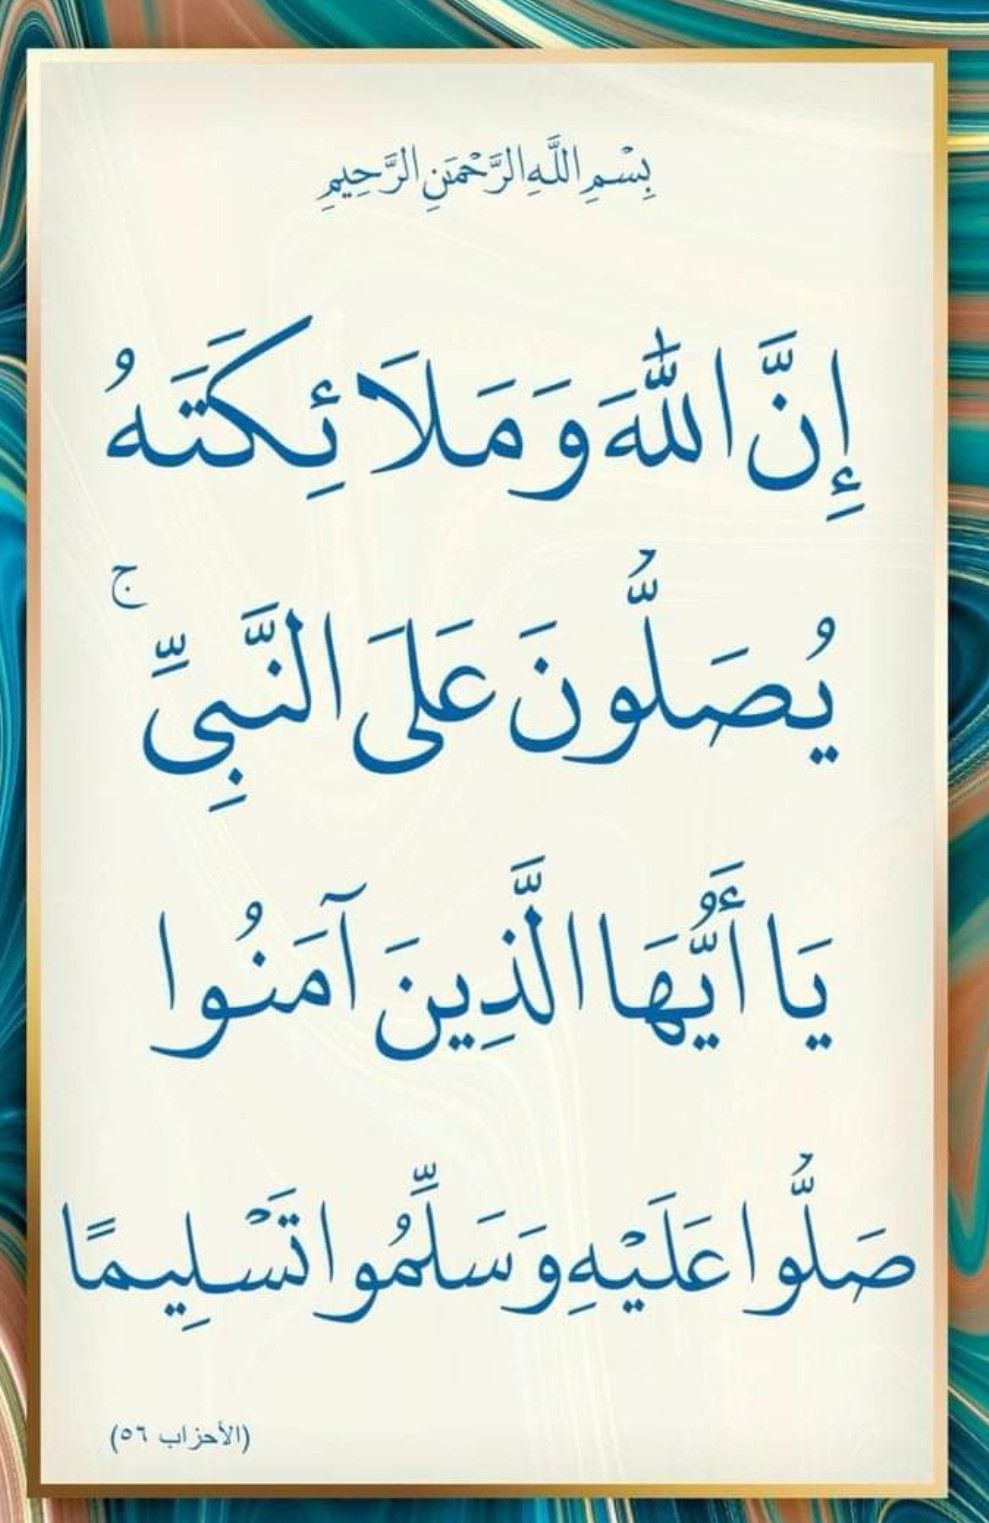 بِسْمِ اللَّهِ الرَّحْمَٰنِ الرَّحِيمِ
إِنَّ اللَّهَ وَمَلَائِكَتَهُ
يُصَلُّونَ عَلَى النَّبِيِّ ۚ
يَا أَيُّهَا الَّذِينَ آمَنُوا
صَلُّوا عَلَيْهِ وَسَلِّمُوا تَسْلِيمًا
(الأحزاب ٥٦)